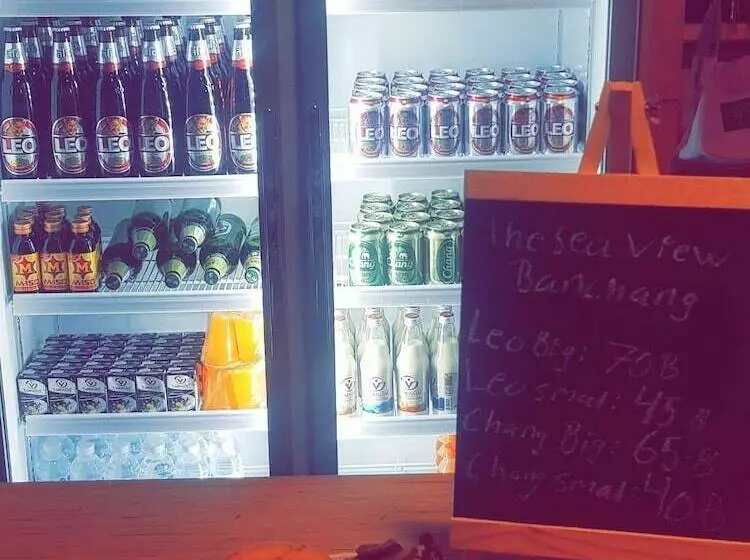 LEO LEO LEO LEO LEO LEO
LEO LEO LEO LEO LEO LEO
M M M
M-150
Chang Chang Chang
The Sea View
Leo Big: 70 B
Leo smal: 45 B
Chang Big: 65 B
Chang smal: 40 B